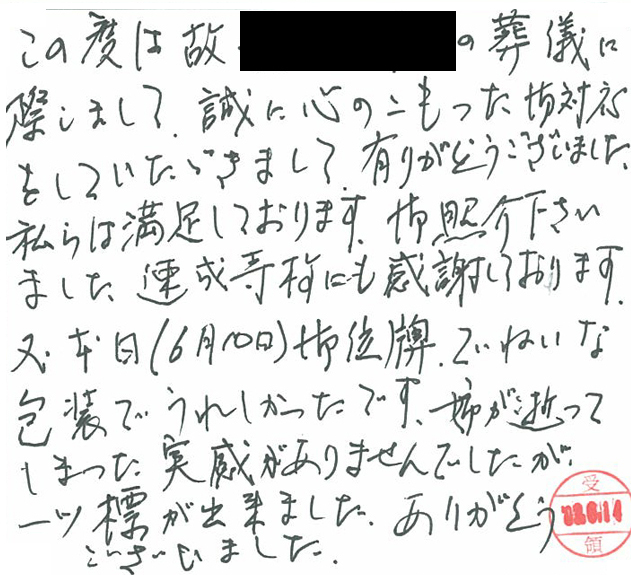 この度は故 の葬儀に
際しまして、誠に心のこもった御対応
をしていただきまして、有りがとうございました。
私らは満足しております。御照介下さい
ました。連成寺様にも感謝しております。
又、本日(6月10日)御位牌、ていねいな
包装でうれしかったです。姉が逝って
しまった実感がありませんでしたが、
一ツ標が出来ました。ありがとう
ございました。
受
領